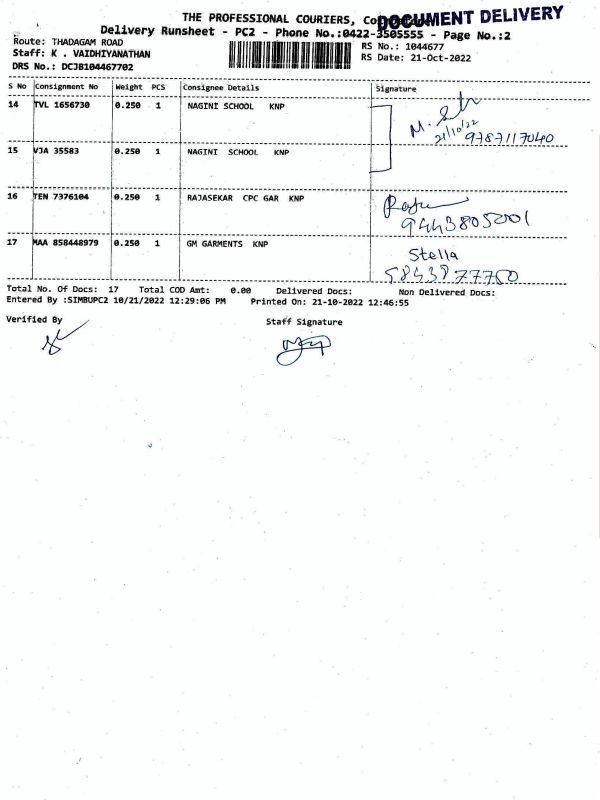 THE PROFESSIONAL COURIERS,
DOCUMENT DELIVERY
Delivery Runsheet - PC2 - Phone No.:0422-3505555 - Page No.:2
Route: THADAGAM ROAD
RS No.: 1044677
Staff: K . VAIDHIYANATHAN
RS Date: 21-Oct-2022
DRS No.: DCJB104467702
S No Consignment No Weight PCS Consignee Details Signature
14 TVL 1656730 0.250 1 NAGINI SCHOOL KNP
M.
21/10/22
9787117040
15 VJA 35583 0.250 1 NAGINI SCHOOL KNP
16 TEN 7376104 0.250 1 RAJASEKAR CPC GAR KNP
9443805001
17 MAA 858448979 0.250 1 GM GARMENTS KNP
Stella
Total No. Of Docs: 17 Total COD Amt: 0.00 Delivered Docs: Non Delivered Docs:
Entered By :SIMBUPC2 10/21/2022 12:29:06 PM Printed On: 21-10-2022 12:46:55
Verified By Staff Signature